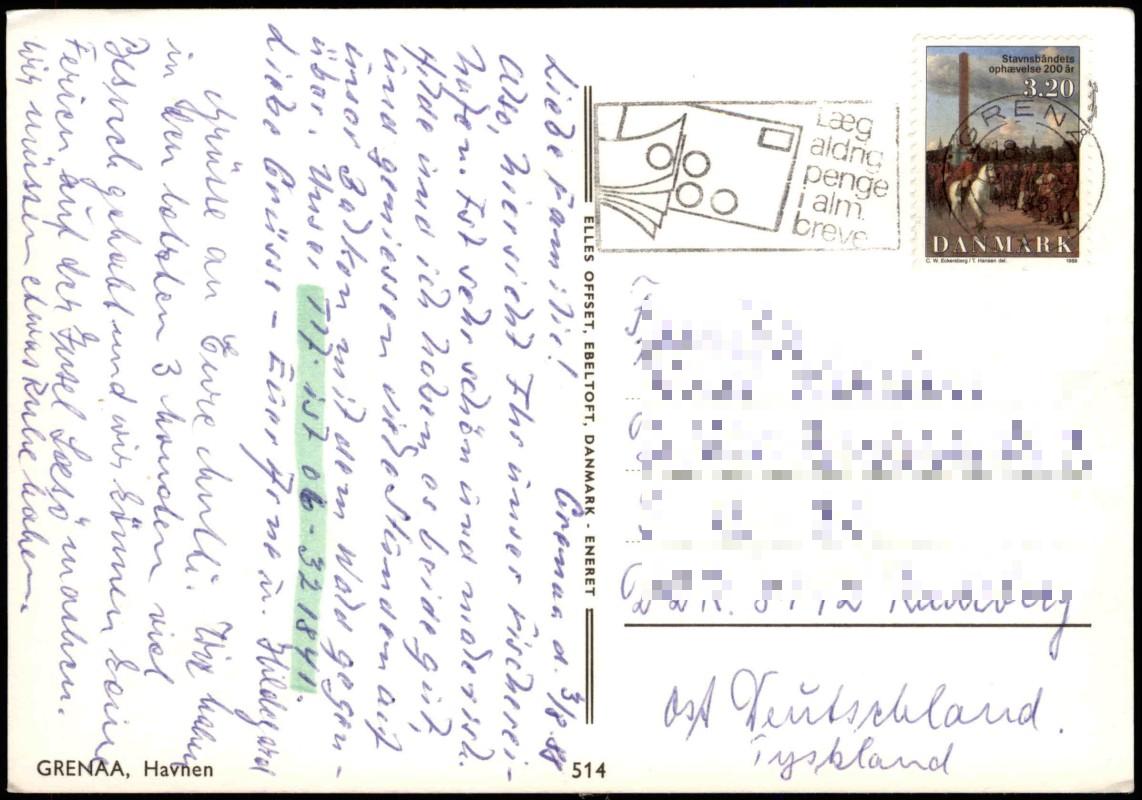 Liebe Familie! Grenaa d. 3/8.88
Also, hier sieht Ihr unser Fischerei-
hafen. Ist sehr schön und malerisch.
und ich haben es beide gut,
und geniessen viele Stunden auf
unser Balkon mit dem Wald gegen-
über. Unser Tlf. ist 06-321841.
Liebe Grüsse - Euer Arne u. Hildegard
Grüsse an Eure Mutti. Wir haben
in den letzten 3 Monaten viel
Besuch gehabt und wir können keine
Ferien auf der Insel Læsø machen.
Wir müssen etwas Ruhe haben.
GRENAA, Havnen
514
ELLES OFFSET, EBELTOFT, DANMARK - ENERET
Læg
aldrig
penge
i alm.
breve
GRENA
18
Stavnsbåndets
ophævelse 200 år
3.20
DANMARK
C. W. Eckersberg / T. Hansen del. 1988
Ost Deutschland.
Tyskland